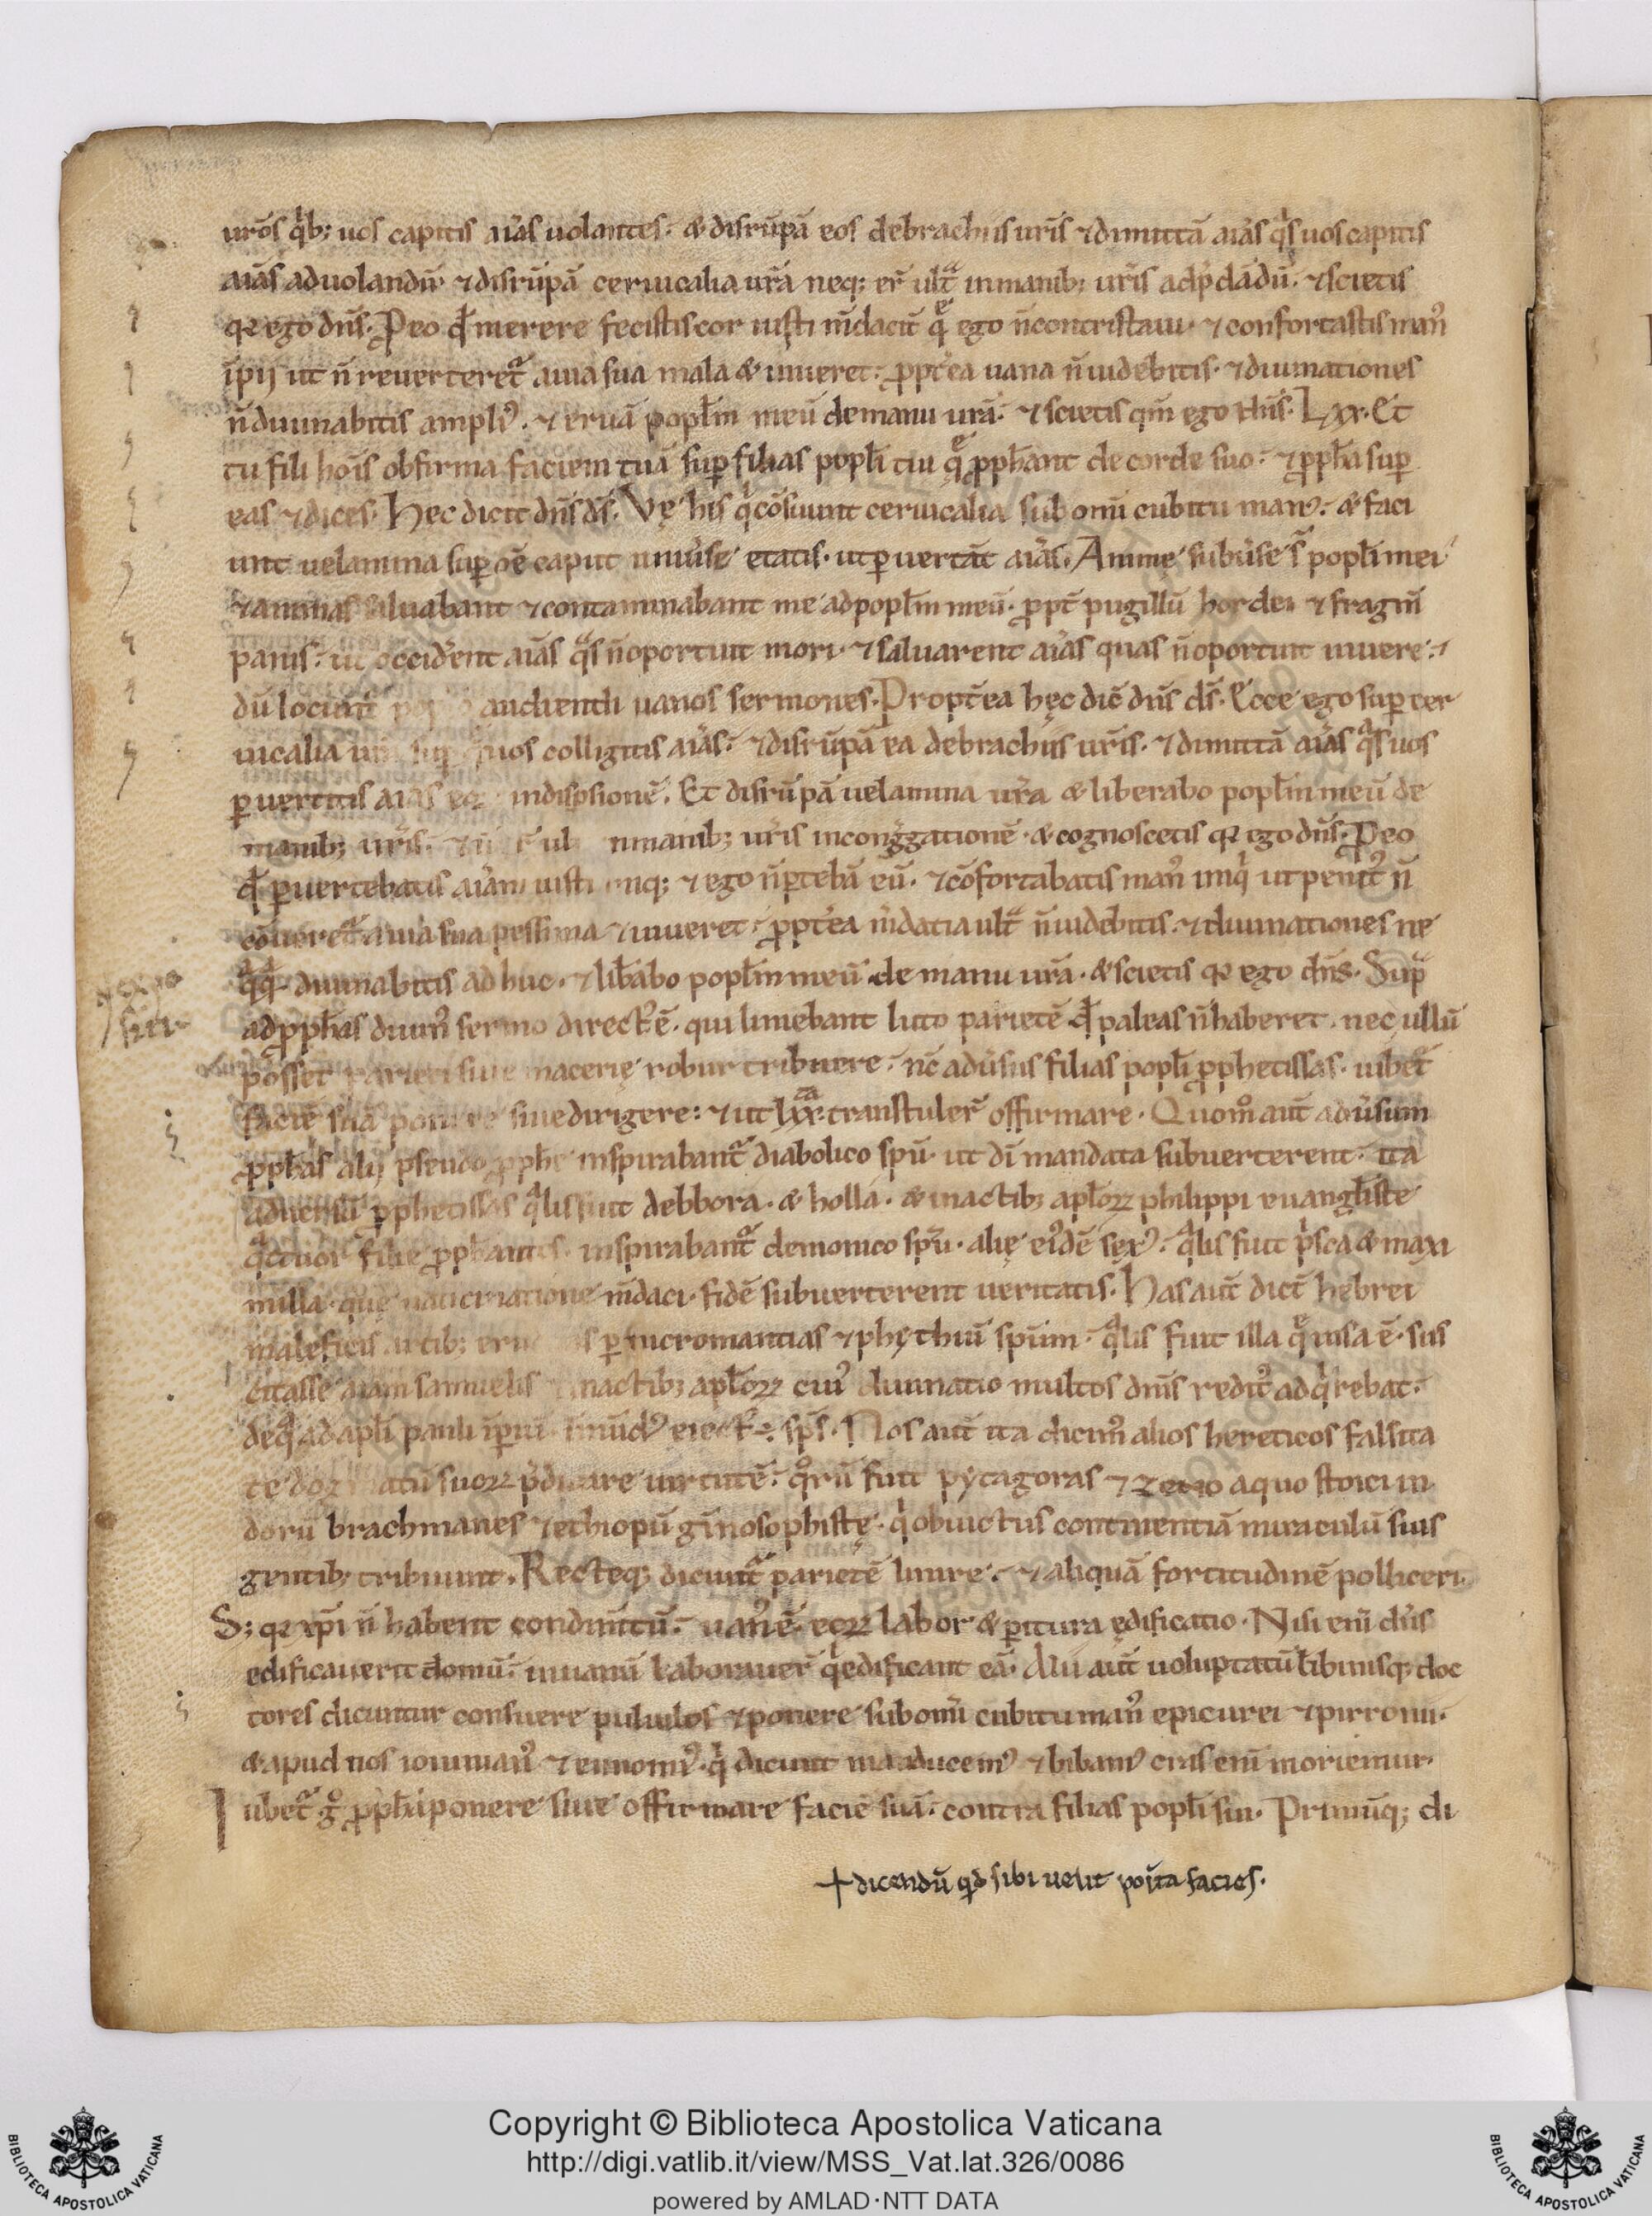 ur̄os qⁱb; uos capitis aīas uolantes. & disrūpā eos debrachiis ur̄is ⁊dimittā aīas qᵃs uos capitis
aīas aduolandū ⁊disrūpā ceruicalia ur̄a neq; er̄ ult̄ᵃ inmanib; ur̄is adp̄dādū. ⁊scietis
qꝛ ego dn̄s. P̱eo qđ merere fecistis cor iusti m̄daciť quē ego n̄contristaui ⁊confortastis manꝰ
īpij ut n̄ reuerteretᷣ auia sua mala & uiueret. ꝓpt̄ea uana n̄uidebitis. ⁊diuinationes
n̄diuinabitis ampliꝰ. ⁊eruā popłm meū demanu ur̄a. ⁊scietis qm̄ ego dn̄s. Lxx. Et
tu fili hoīs obfirma faciem tuā suꝑ filias popłi tui quę ꝓph̄ant de corde suo. ⁊ꝓph̄a suꝑ
eas ⁊dices. Hec dicit dn̄s ds̄. Vę his qⁱ cōsuunt ceruicalia sub omī cubitu manꝰ. & faci
unt uelamina suꝑ oē caput uniūse etatis. utꝑuertāt aīas. Animę subūse st̄ popłi mei
⁊animas saluabant ⁊contaminabant me adpopłm meū. ꝓpt̄ pugillū hordei ⁊fragm̄
panis. ut occiderent aīas qᵃs n̄oportuit mori. ⁊saluarent aīas quas n̄oportuit uiuere.
dū locunt̄ audienti uanos sermones. Propt̄ea hęc dic̄ dn̄s ds̄. Ecce ego suꝑ cer
uicalia uos colligitis aīas. ⁊disrūpā ea debrachiis ur̄is. ⁊dimittā aīas qᵃs uos
ꝑuertitis aīas indispsionē. Et disrūpā uelamina ur̄a & liberabo popłm meū de
manib; ur̄is. inmanib; ur̄is incongᵉgationē. & cognoscetis qꝛ ego dn̄s. P̱eo
qđ ꝑuertebatis aīam iusti iniq; ⁊ego n̄ꝑtebā eū. ⁊cōfortabatis manꝰ iniqⁱ utpenitꝰ n̄
cōueretᷣ auia sua pessima ⁊uiueret. ꝓpt̄ea m̄dacia ult̄ᵃ n̄uidebitis. ⁊diuinationes ne
qᵃqᵃ diuinabitis adhuc. ⁊lib̄abo popłm meū de manu ur̄a. & scietis qꝛ ego dn̄s. Supᵃ
adꝓph̄as diuinꝰ sermo directꝰē. qui linebant luto parietē qđ paleas n̄haberet. nec ullū
posset parieti siue macerię robur tribuere. nc̄ adūsus filias popłi ꝓphetissas. iubetᷣ
faciē suā ponere siue dirigere: ⁊ut lxx. transtuler̄ offirmare. Quom̊ aut̄ adūsum
ꝓph̄as alij pseudo ꝓph̄e inspirabantᷣ diabolico spū. ut dī mandata subuerterent. ita
aduersū ꝓphetissas qᵃlis fuit debbora. & holla. & inactib; apłoꝝ philippi euangłiste
qᵃttuor filie ꝓph̄antes. inspirabantᷣ demonico spū. alię eiꝰdē sexꝰ. qᵃlis fuit pⁱsca & maxi
milla. quę uaticinatione m̄daci. fidē subuerterent ueritatis. Has aut̄ dict̄ hebrei
maleficis artib; ꝑ nicromantias ⁊phythiū spūm. qᵃlis fuit illa quę uisa ē. sus
citasse aīam samuelis ⁊ inactib; apłoꝝ cuiꝰ diuinatio multos dn̄is reditꝰ adqⁱrebat.
deqᵃ ad apłi pauli iꝑiū. īmūdꝰ eiectꝰ ē sps̄. Nos aut̄ ita dicimꝰ alios hereticos falsita
te dogmatū suoꝝ p̄dicare uirtutē. qᵒrū fuit pytagoras ⁊ zeno aquo stoici in
dorū brachmanes ⁊ethiopū ginosophistę. qⁱ obuictus continentiā miraculū suis
gentib; tribuunt. Recteq; dicuntᷣ parietē linire. ⁊aliquā fortitudinē polliceri.
S; qꝛ xp̄i n̄ habent condim̄tū. uanꝰē. eoꝝ labor & ꝑitura ędificatio. Nisi enī dn̄s
edificauerit domū. inuanū laborauer̄ qⁱedificant eā. Alii aut̄ uoluptatū libidinisq; doc
tores dicuntur consuere puluilos ⁊ponere subomī cubitu manꝰ epicurei ⁊pirroni.
& apud nos iouinianꝰ ⁊eunomiꝰ. qⁱ dicunt manducemꝰ ⁊bibamꝰ cras enī moriemur.
Iubetᷣ gᵒ ꝓph̄a ponere siue offirmare faciē suā. contra filias popłi sui. Primūq; di
+dicendū qđ sibi uelit posita facies.
Copyright © Biblioteca Apostolica Vaticana
http://digi.vatlib.it/view/MSS_Vat.lat.326/0086
powered by AMLAD·NTT DATA
BIBLIOTECA APOSTOLICA VATICANA
BIBLIOTECA APOSTOLICA VATICANA